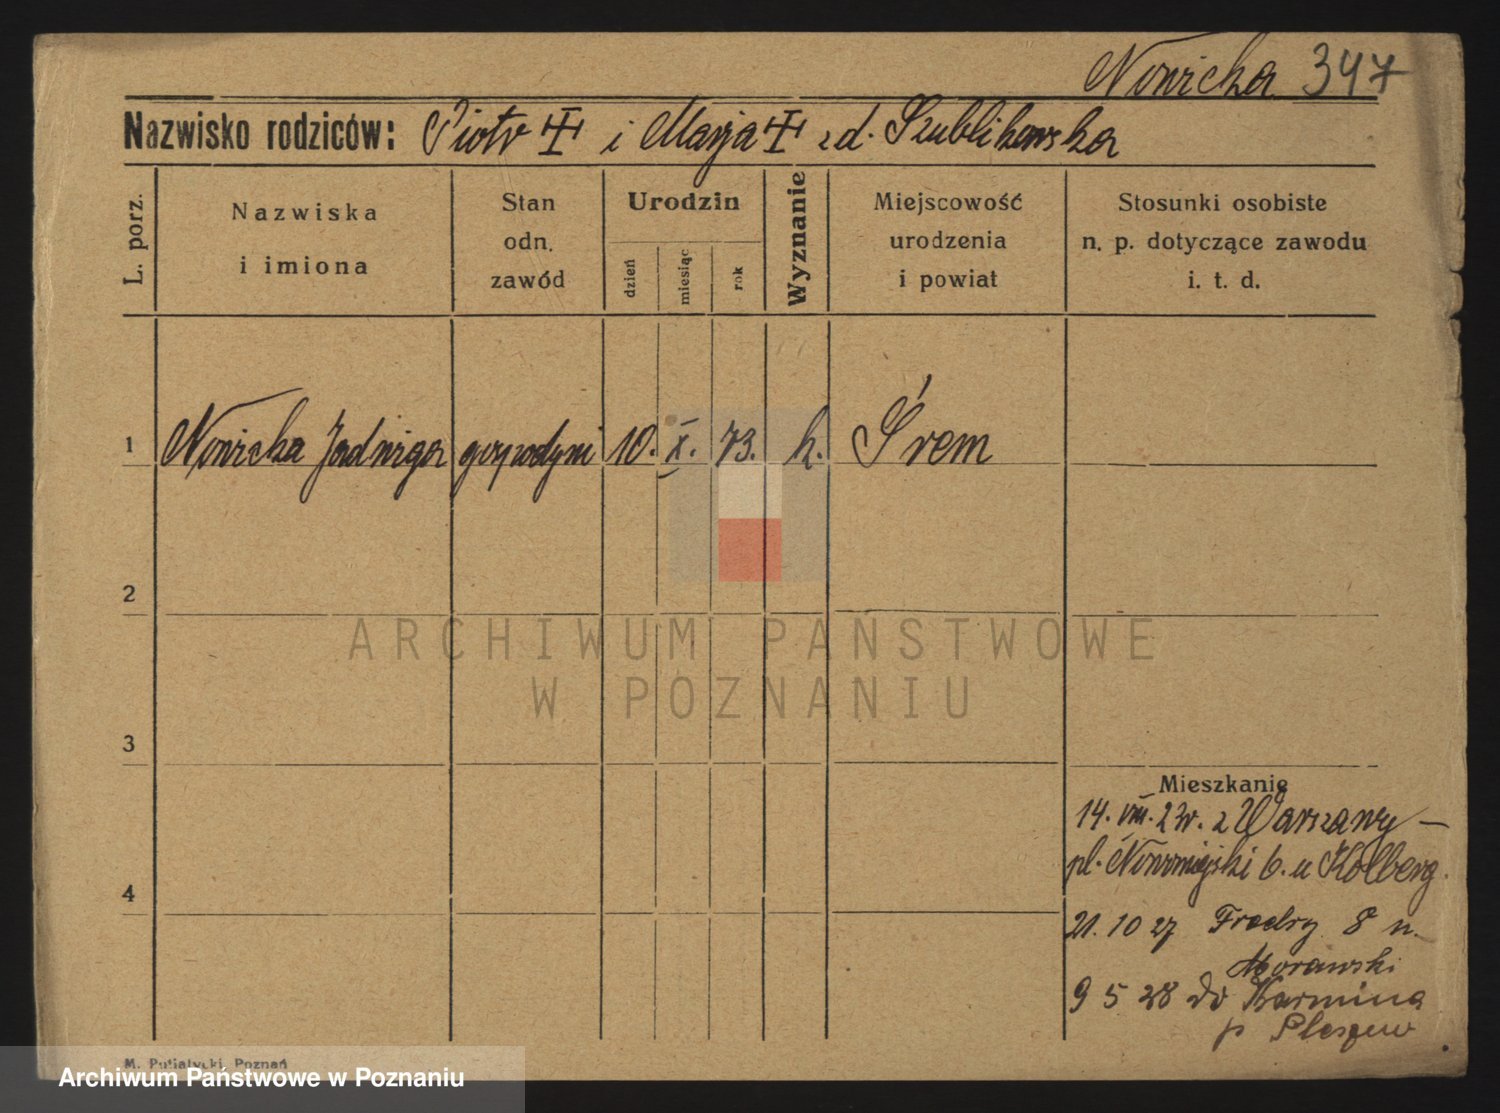 Nowicka 347
Nazwisko rodziców: Piotr i Marja zd. Szublikowska
L. porz.
Nazwiska
i imiona
Stan
odn.
zawód
Urodzin
dzień
miesiąc
rok
Wyznanie
Miejscowość
urodzenia
i powiat
Stosunki osobiste
n. p. dotyczące zawodu
i. t. d.
1 Nowicka Jadwiga gospodyni 10. X. 73. k. Śrem
2
ARCHIWUM PAŃSTWOWE
W POZNANIU
3
Mieszkanie
14. VIII. 23r. z Warszawy —
pl. Nowomiejski 6. u Kolberg.
4
21. 10 27 Fredry 8 u.
Morawski
9 5 28 do Karmina
p Pleszew
M. Putiatycki, Poznań
Archiwum Państwowe w Poznaniu